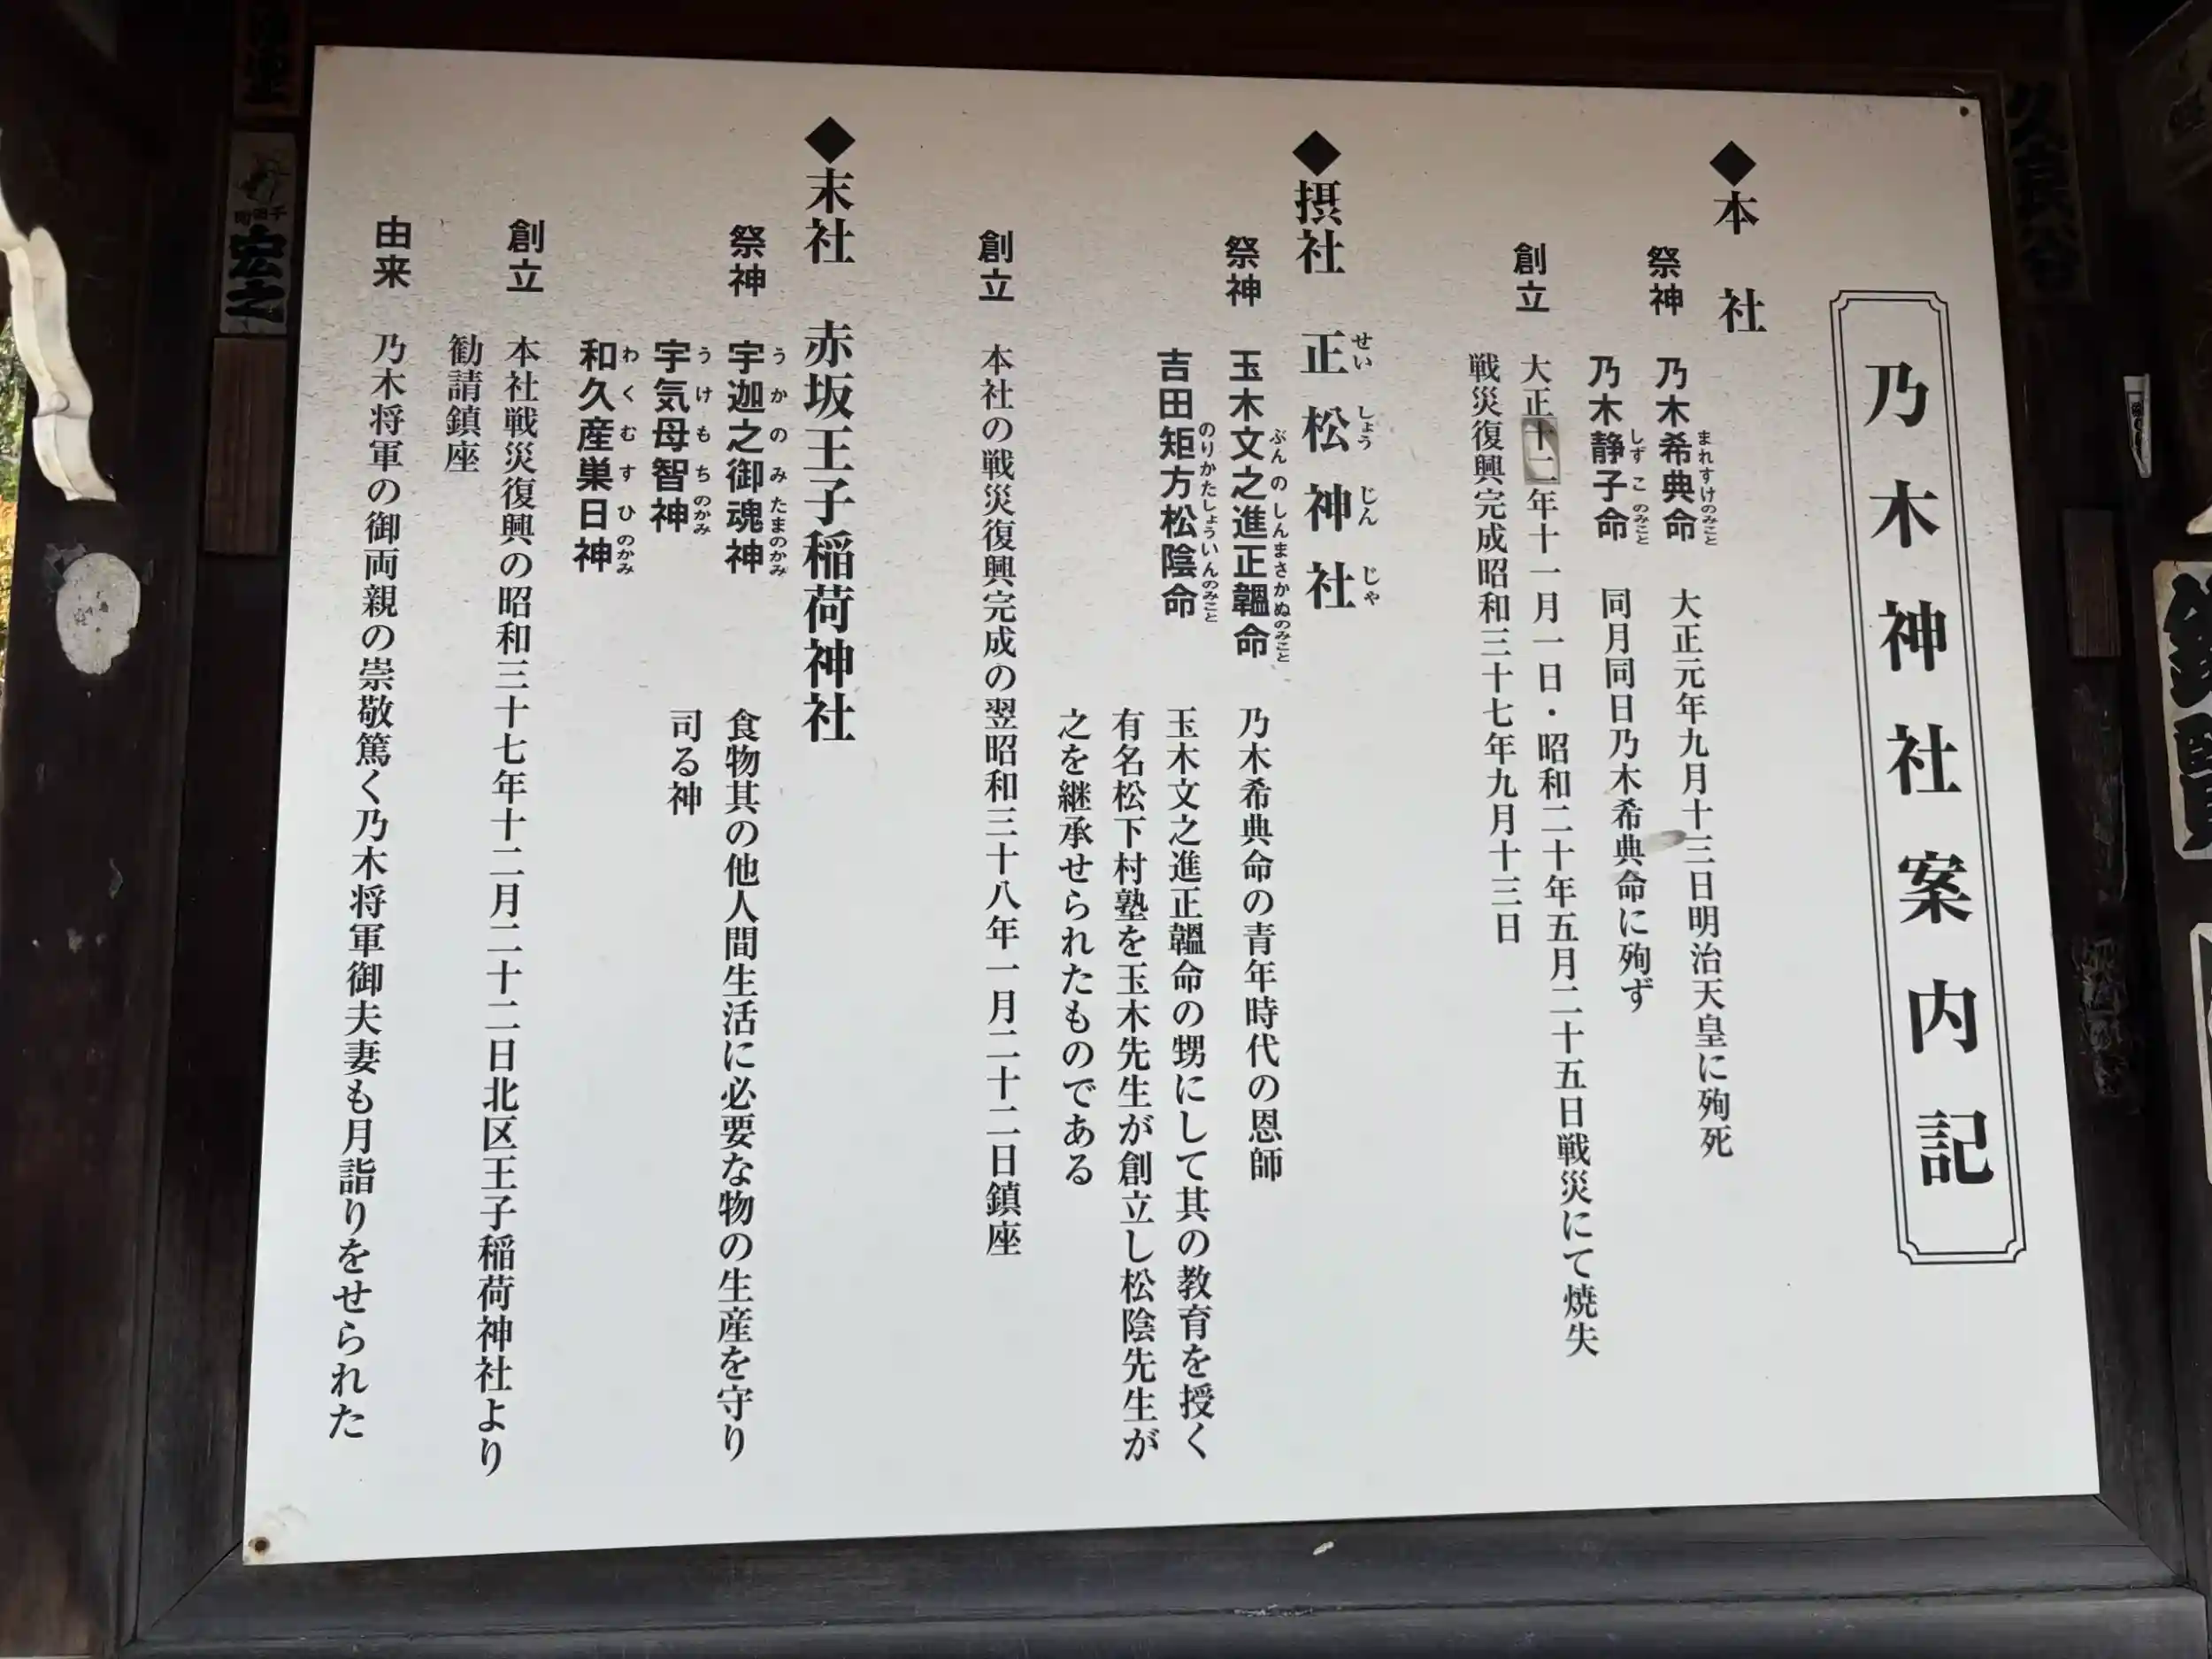 乃木神社案内記
◆本社
祭神
乃木希典命
まれすけのみこと
大正元年九月十三日明治天皇に殉死
乃木静子命
しずこのみこと
同月同日乃木希典命に殉ず
創立
大正十二年十一月一日・昭和二十年五月二十五日戦災にて焼失
戦災復興完成昭和三十七年九月十三日
◆摂社 正松神社
せいしょうじんじゃ
祭神
玉木文之進正韞命
ぶんのしんまさかぬのみこと
乃木希典命の青年時代の恩師
吉田矩方松陰命
のりかたしょういんのみこと
玉木文之進正韞命の甥にして其の教育を授く
有名松下村塾を玉木先生が創立し松陰先生が
之を継承せられたものである
創立
本社の戦災復興完成の翌昭和三十八年一月二十二日鎮座
◆末社 赤坂王子稲荷神社
祭神
宇迦之御魂神
うかのみたまのかみ
宇気母智神
うけもちのかみ
和久産巣日神
わくむすひのかみ
食物其の他人間生活に必要な物の生産を守り
司る神
創立
本社戦災復興の昭和三十七年十二月二十二日北区王子稲荷神社より
勧請鎮座
由来
乃木将軍の御両親の崇敬篤く乃木将軍御夫妻も月詣りをせられた
宏之